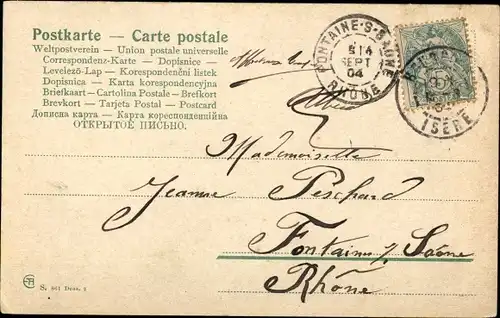 Postkarte — Carte postale
Weltpostverein — Union postale universelle
Correspondenz-Karte — Dopisnice —
Levelező-Lap — Korespondenční listek
Dopisnica — Karta korespondencyjna
Briefkaart — Cartolina Postale — Brefkort
Brevkort — Tarjeta Postal — Postcard
Дописна карта — Карта кореспонденційна
ОТКРЫТОЕ ПИСЬМО.
FONTAINE-S-SAONE
SEPT
04
RHONE
ISÈRE
Mademoiselle
Jeanne Peschard
Fontaine s/ Saône
Rhône
S. 861 Dess. 4